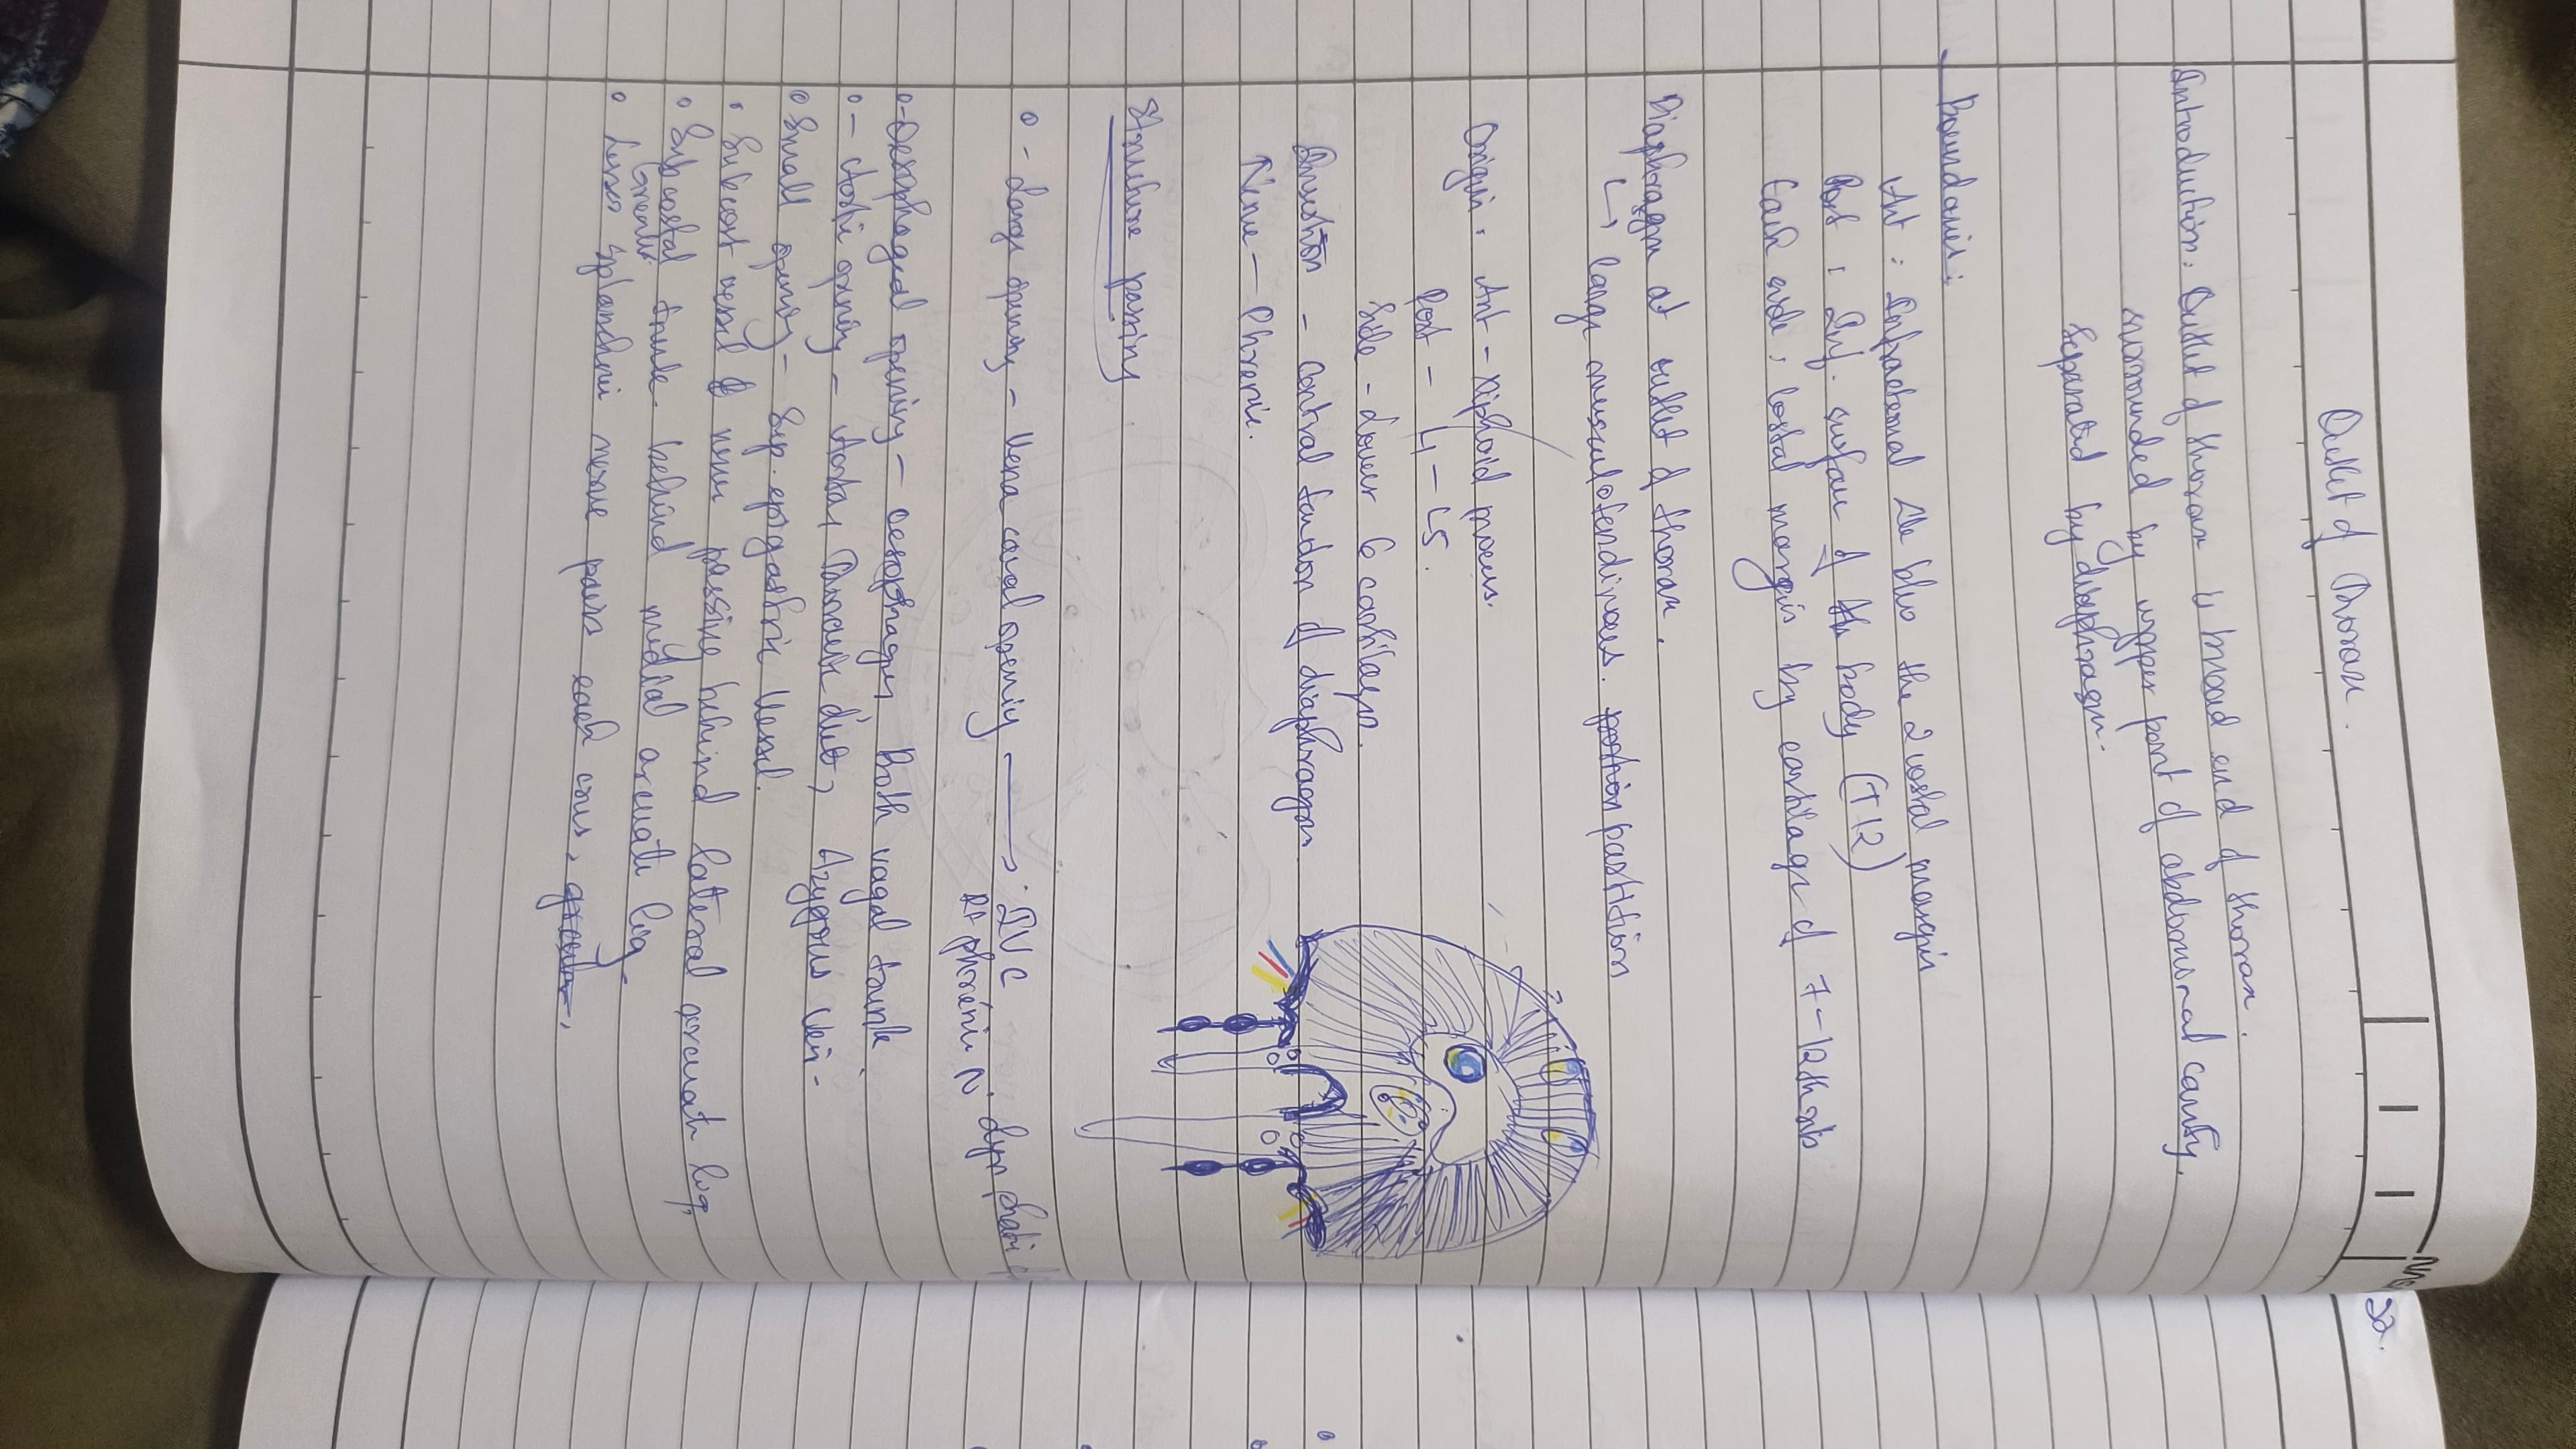 Outlet of Thorax.
Introduction: Outlet of thorax is broad end of thorax.
surrounded by upper part of abdominal cavity,
separated by diaphragm.
Boundaries:
Ant : Infrasternal the b/w the 2 costal margin
Post : Inf. surface of the body (T12)
Each side : Costal margin by cartilage of 7-12th rib
Diaphragm at outlet of thorax.
↳ large musculotendinous. partition
Origin : Ant - xiphoid process.
Post - L1 - L5.
Side - Lower 6 cartilages.
Insertion - Central tendon of diaphragm
Nerve - Phrenic.
Structure passing
- Large opening - Vena caval opening → IVC
Rt phrenic N. Lymphatic
- Oesophageal opening - oesophagus Both vagal trunk
- Aortic opening - Aorta, Thoracic duct, Azygous Vein.
Small opening - Sup. epigastric Vessel.
Subcost vessel & nerve passing behind lateral arcuate lig,
Subcostal trunk behind medial arcuate lig.
Greater
Lesser splanchnic nerve pass each crus,
32.